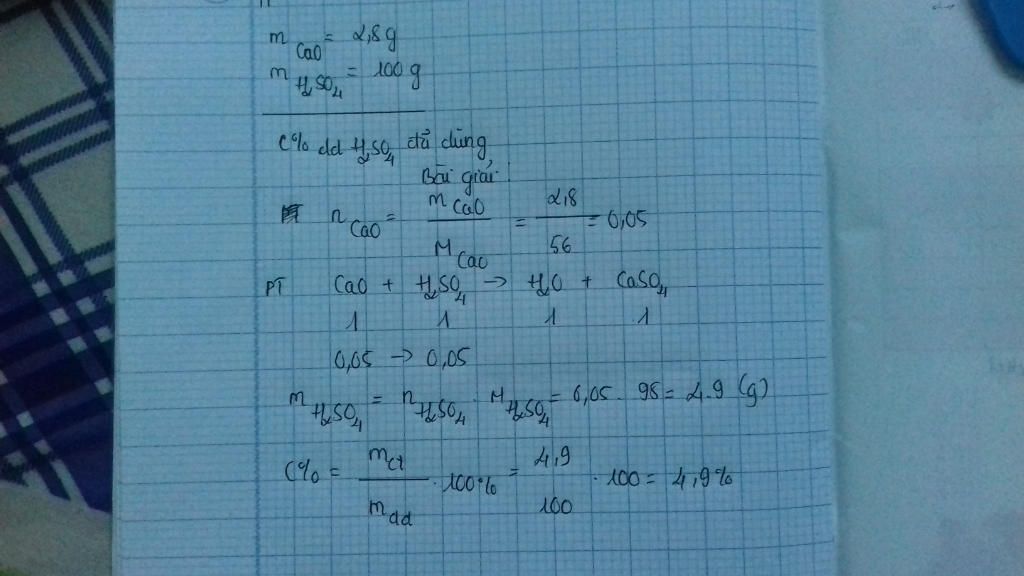 m CaO = 2,8g
m H2SO4 = 100 g
C% dd H2SO4 đã dùng
Bài giải
n CaO = m CaO / M CaO = 2,8 / 56 = 0,05
PT CaO + H2SO4 → H2O + CaSO4
1 1 1 1
0,05 → 0,05
m H2SO4 = n H2SO4 . M H2SO4 = 0,05 . 98 = 4.9 (g)
C% = mct / mdd . 100% = 4,9 / 100 . 100 = 4,9%